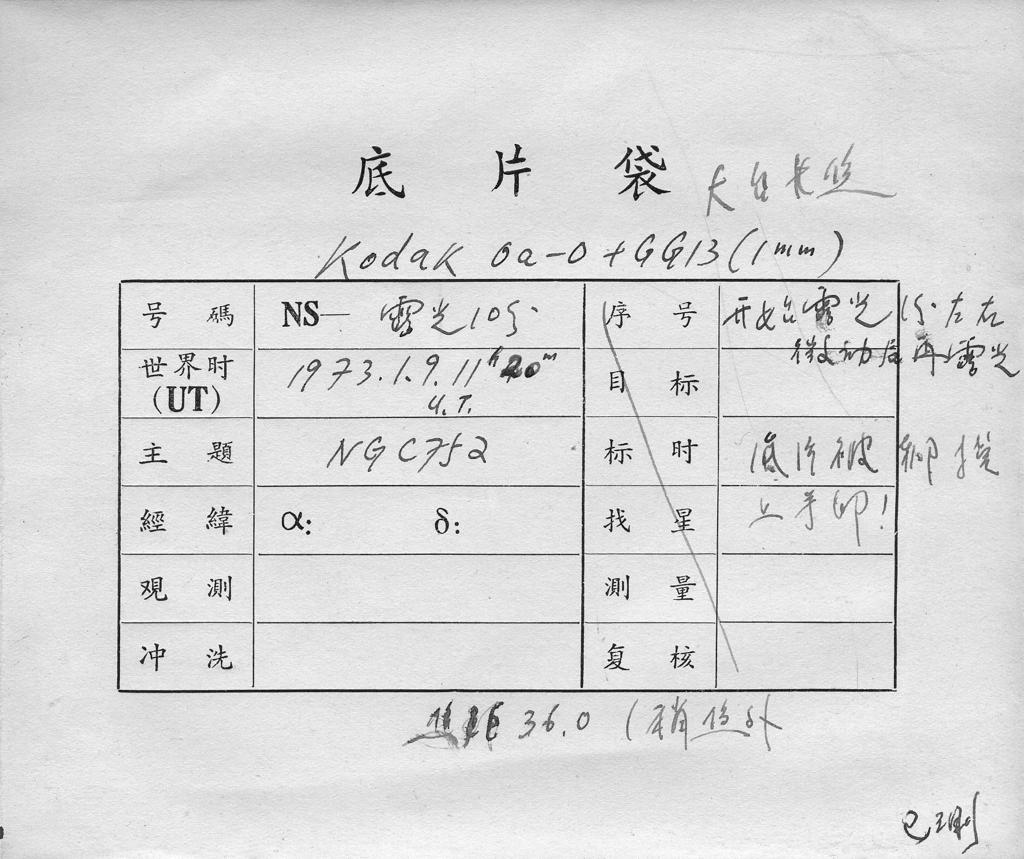 底片袋
Kodak 0a-0+GG13(1mm)
号碼 NS— 露光10分 序号 开始露光1分左右
微动后再露光
世界时(UT) 1973.1.9.11h20m 目标
U.T.
主題 NGC752 标时 底片被
經緯 α: δ: 找星 上手印!
观測 測量
冲洗 复核
36.0 (稍焦外
已测